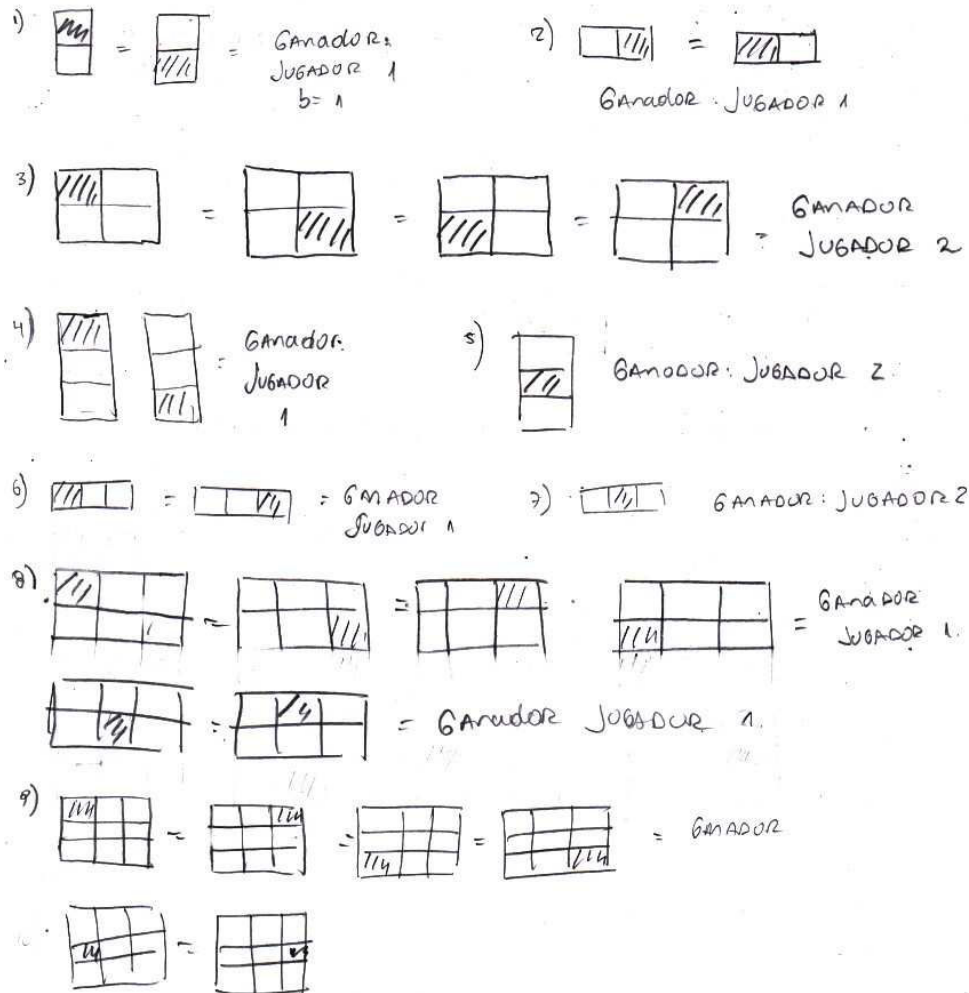 1) = = GAnadOR:
JUGADOR 1
b= 1
2) =
GAnadoR. JUGADOR 1
3) = = = = GANADOR
JUGADOR 2
4) = GAnadoR:
JUGADOR
1
5) GANADOR: JUGADOR 2
6) = = GANADOR
JUGADOR 1
7) GANADOR: JUGADOR 2
8) = = = GANADOR
JUGADOR 1.
= = GANADOR JUGADOR 1.
9) = = = = GANADOR
=